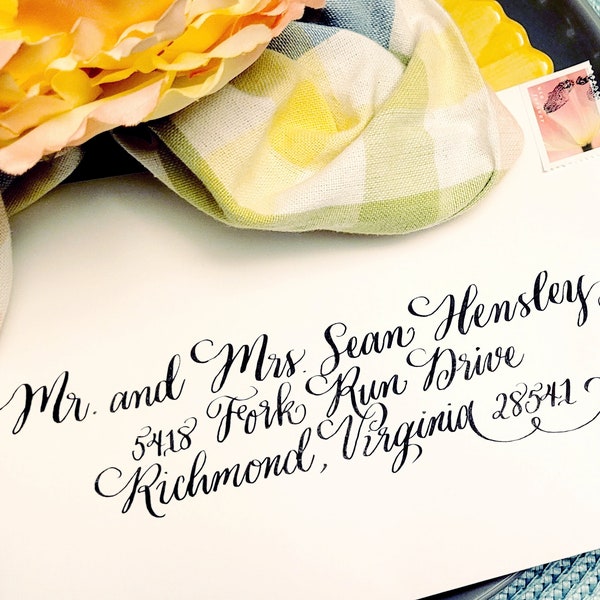 Mr. and Mrs. Sean Hensley
5418 Fork Run Drive
Richmond, Virginia 28541